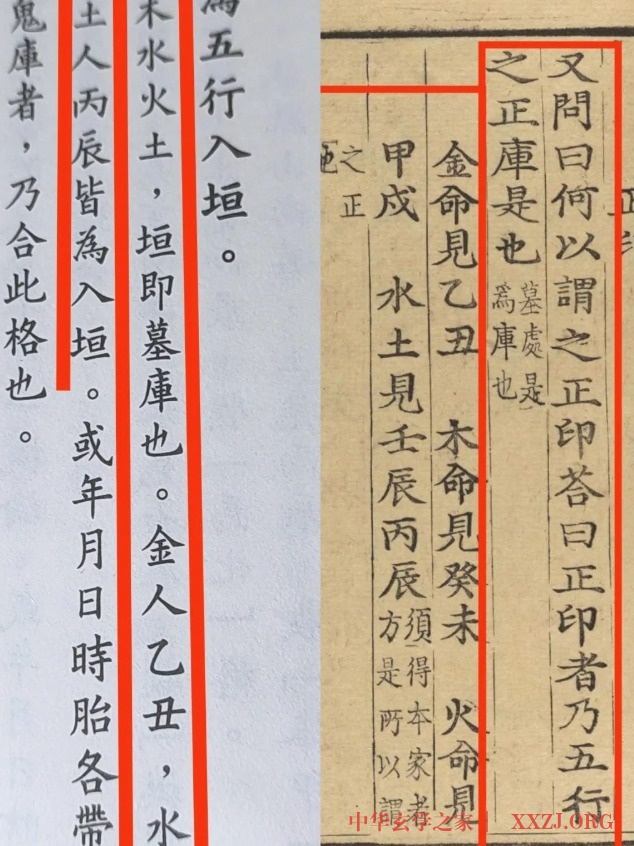 正
又問曰何以謂之正印荅曰正印者乃五行
之正庫是也墓處是
爲庫也
金命見乙丑 木命見癸未 火命見
甲戌 水土見壬辰丙辰須得本家者
方是所以謂
之正
為五行入垣。
木水火土，垣即墓庫也。金人乙丑，水
土人丙辰皆為入垣。或年月日時胎各帶
鬼庫者，乃合此格也。
中华玄学之家 XXZJ.ORG